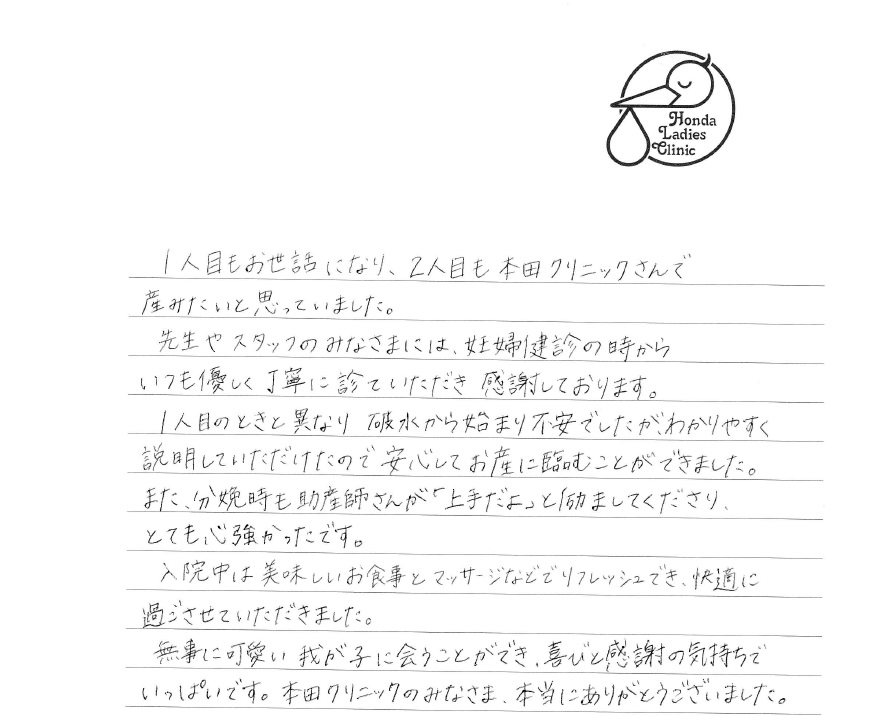 Honda
Ladies
Clinic
1人目もお世話になり、2人目も本田クリニックさんで
産みたいと思っていました。
先生やスタッフのみなさまには、妊婦健診の時から
いつも優しく丁寧に診ていただき感謝しております。
1人目のときと異なり破水から始まり不安でしたが、わかりやすく
説明していただけたので安心してお産に臨むことができました。
また、分娩時も助産師さんが「上手だよ」と励ましてくださり、
とても心強かったです。
入院中は美味しいお食事とマッサージなどでリフレッシュでき、快適に
過ごさせていただきました。
無事に可愛い我が子に会うことができ、喜びと感謝の気持ちで
いっぱいです。本田クリニックのみなさま、本当にありがとうございました。